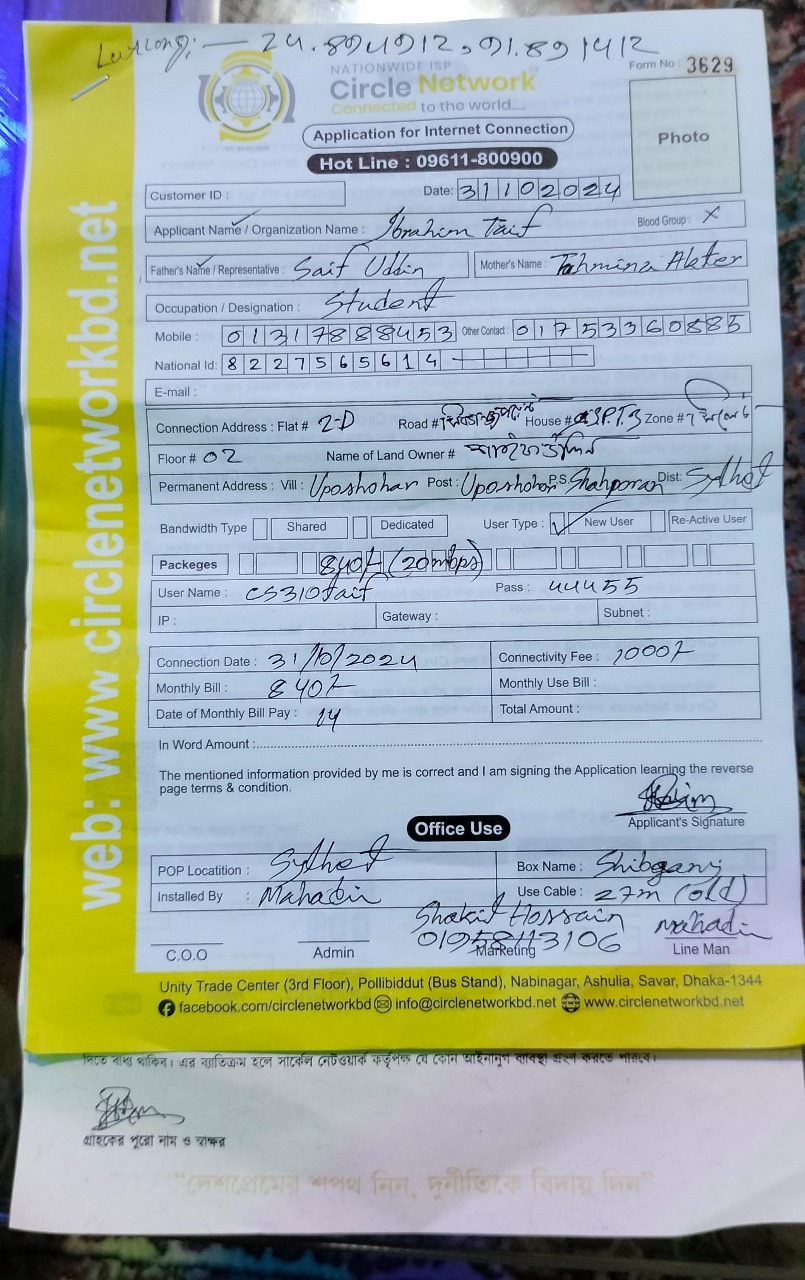 24.894912, 91.891412
NATIONWIDE ISP
Circle Network
Connected to the world....
Form No : 3629
Application for Internet Connection
Photo
Hot Line : 09611-800900
Customer ID :
Date: 31102024
Applicant Name / Organization Name : Ibrahim Taif
Blood Group : X
Father's Name / Representative : Saif Uddin
Mother's Name : Tahmina Akter
Occupation / Designation : Student
Mobile : 01317888453 Other Contact : 01753360885
National Id: 8227565614
E-mail :
Connection Address : Flat # 2-D Road # House # Zone #
Floor # 02 Name of Land Owner #
Permanent Address : Vill : Uposhohar Post : Uposhohor P.S. Shahporan Dist: Sylhet
Bandwidth Type Shared Dedicated User Type : New User Re-Active User
Packeges 840/- (20mbps)
User Name : CS310taif Pass : 44455
IP : Gateway : Subnet :
Connection Date : 31/10/2024 Connectivity Fee : 1000/-
Monthly Bill : 840/- Monthly Use Bill :
Date of Monthly Bill Pay : 14 Total Amount :
In Word Amount :
The mentioned information provided by me is correct and I am signing the Application learning the reverse
page terms & condition.
Applicant's Signature
Office Use
POP Locatition : Sylhet Box Name : Shibganj
Installed By : Mahadi Use Cable : 27m (old)
Shakil Hossain
Mahadi
C.O.O Admin Marketing Line Man
Unity Trade Center (3rd Floor), Pollibiddut (Bus Stand), Nabinagar, Ashulia, Savar, Dhaka-1344
facebook.com/circlenetworkbd info@circlenetworkbd.net www.circlenetworkbd.net
web: www circlenetworkbd.net
দিতে বাধ্য থাকিব। এর ব্যতিক্রম হলে সার্কেল নেটওয়ার্ক কর্তৃপক্ষ যে কোন আইনানুগ ব্যবস্থা গ্রহণ করতে পারবে।
গ্রাহকের পুরো নাম ও স্বাক্ষর
"দেশপ্রেমের শপথ নিন, দুর্নীতিকে বিদায় দিন"